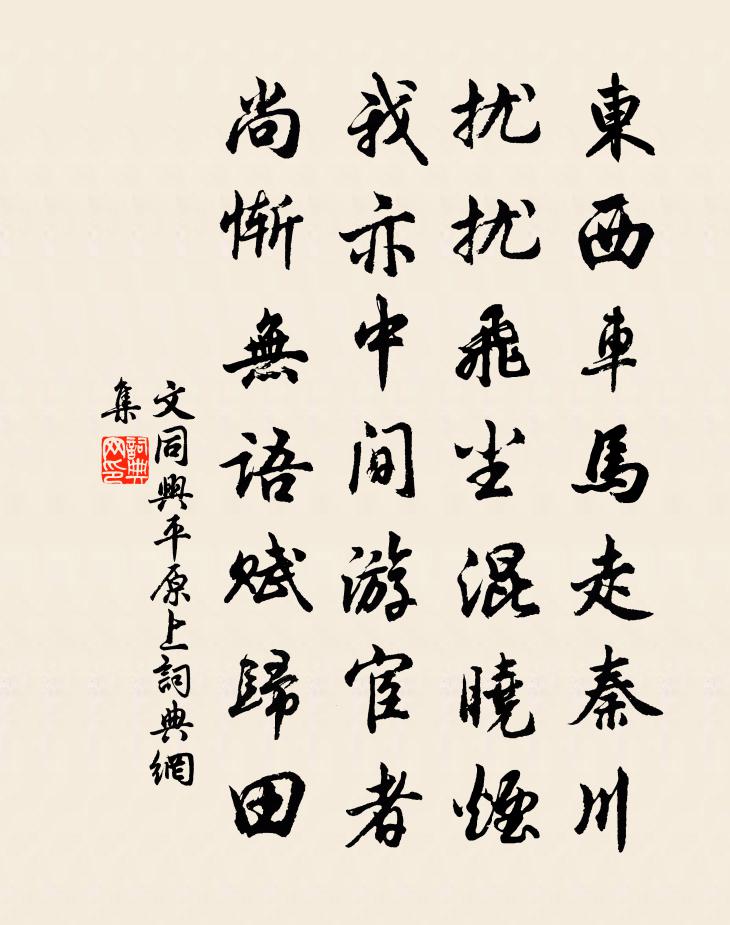 東西車馬走秦川
扰扰飛尘混曉煙
我亦中间游宦者
尚慚無語賦歸田
文同興平原上詞典網
集
詞典
网印